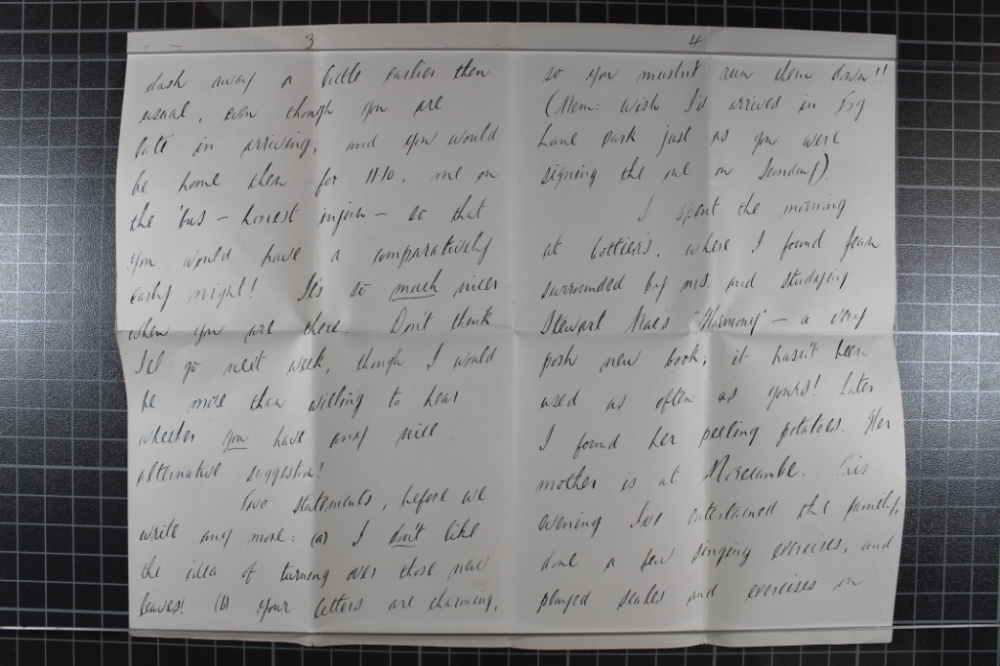 3
dash away a little earlier than
usual, even though you are
late in arriving, and you would
be home then for 11.10. me on
the 'bus – honest injun – so that
you would have a comparatively
early night! It's so much nicer
when you are there. Don't think
I'll go next week, though I would
be more than willing to hear
whether you have any nice
alternative suggestion!
Two statements, before we
write any more: (a) I don't like
the idea of turning over those new
leaves! (b) your letters are charming,
4
so you mustn't run them down!!
(Mem: Wish I'd arrived in Fog
Lane Park just as you were
signing the one on Sunday).
I spent the morning
at Cottier's, where I found Jean
surrounded by ms. and studying
Stewart Macs "Harmony" – a very
posh new book; it hasn't been
used as often as yours! Later
I found her peeling potatoes. Her
mother is at Morecambe. This
evening I've entertained the family,
done a few singing exercises, and
played scales and exercises on